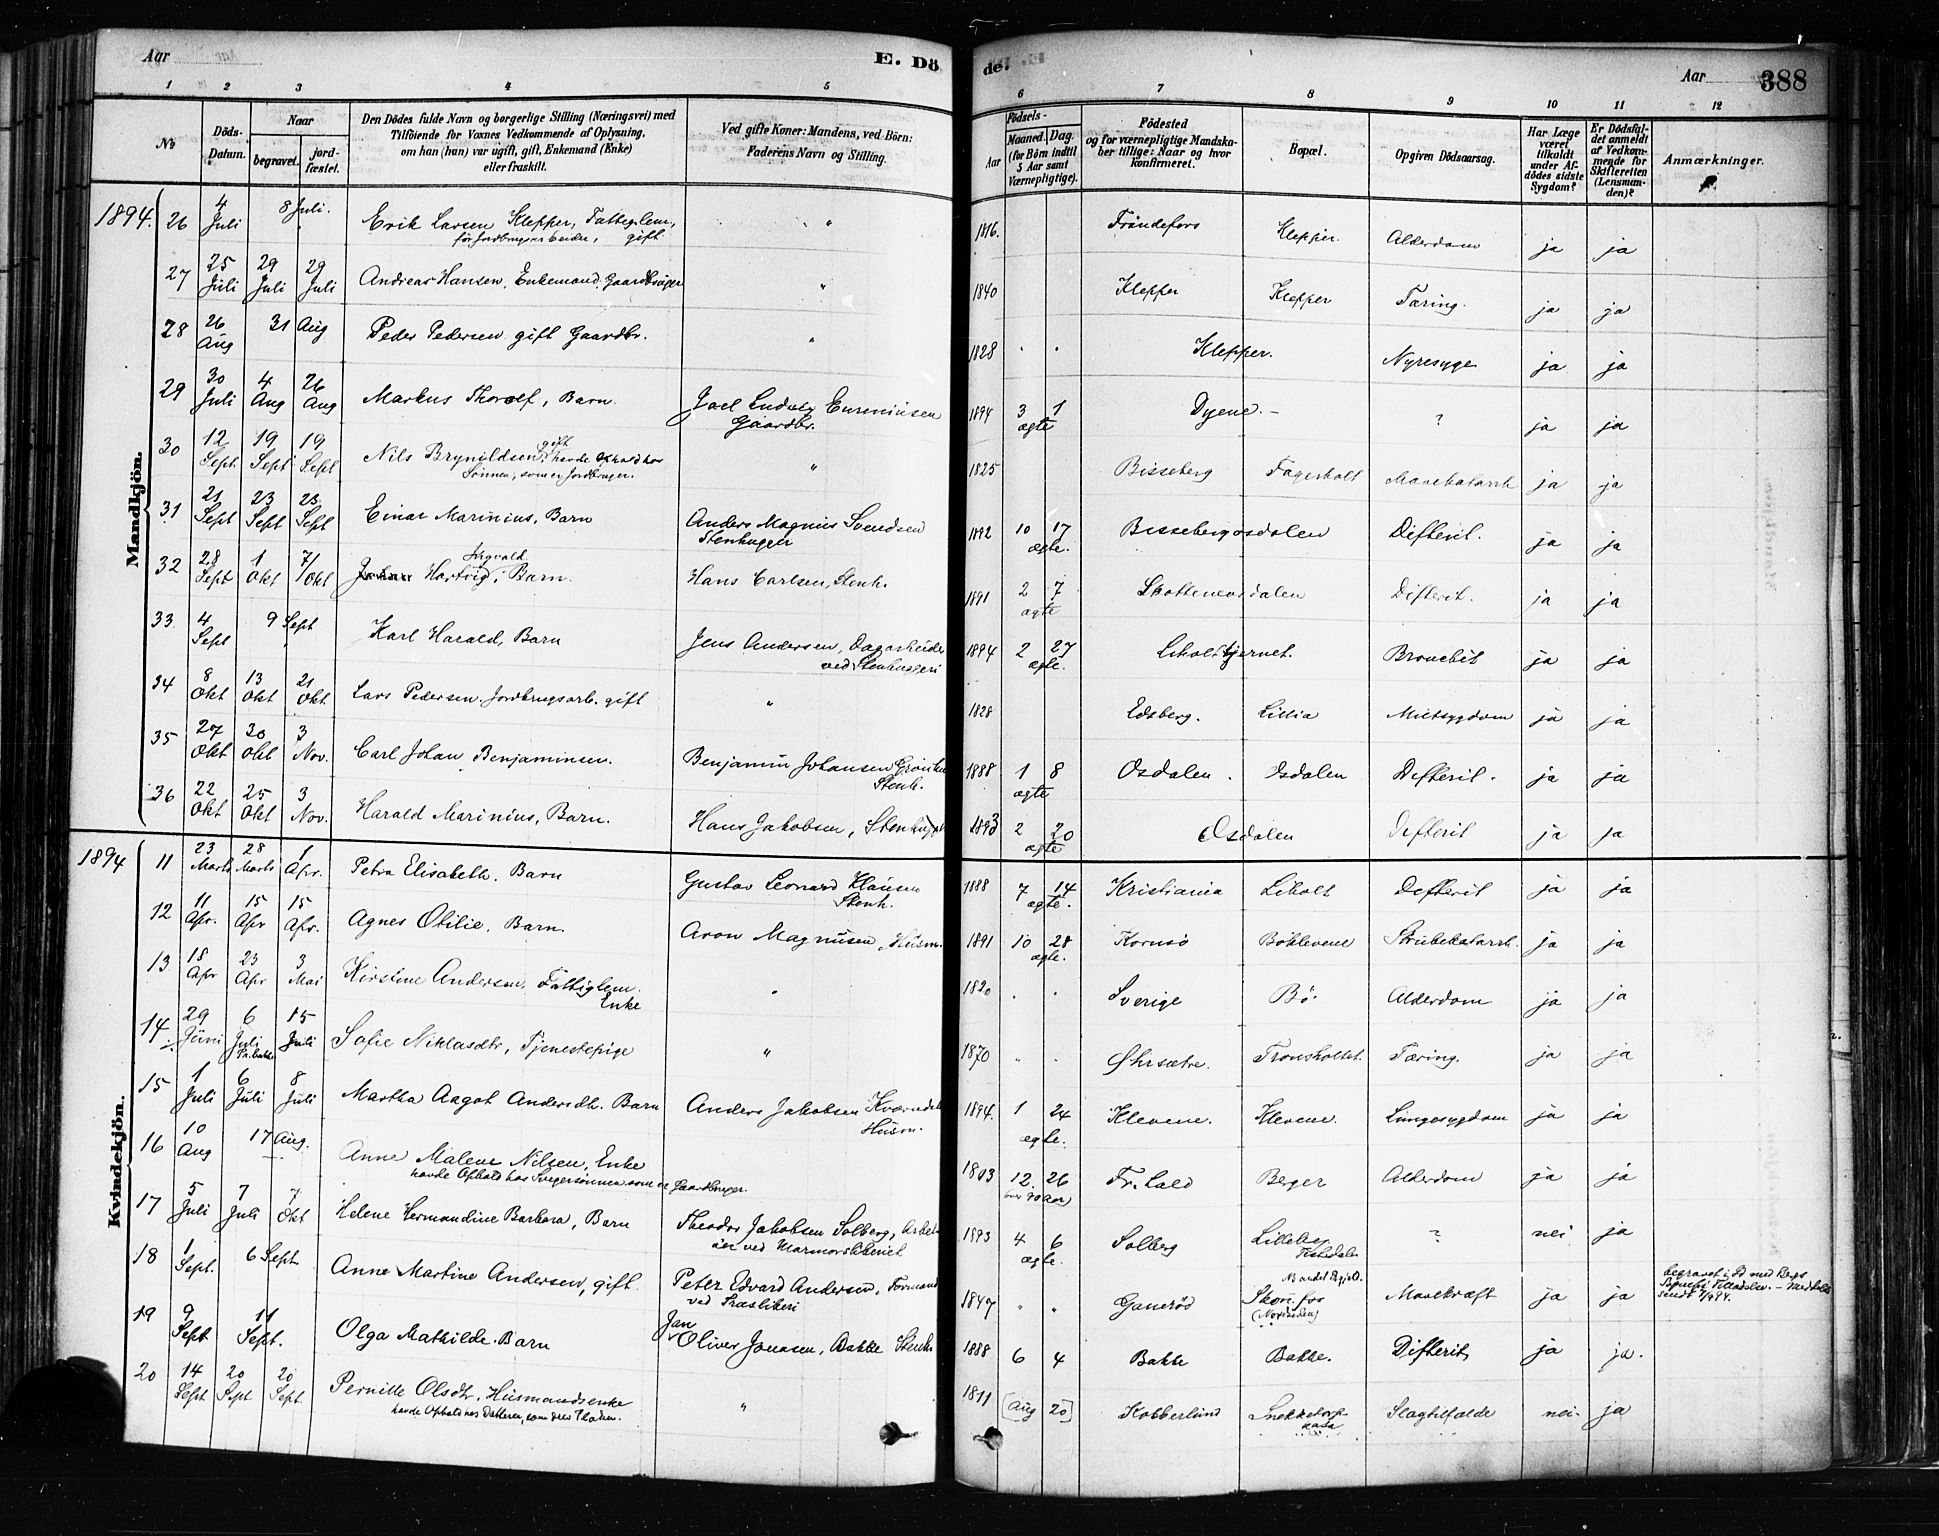 Aar
E. Dö
de.
Aar
388
1 2 3 4 5 6 7 8 9 10 11 12
No
Döds-Datum.
Naar
begravet. jordfæstet.
Den Dödes fulde Navn og borgerlige Stilling (Næringsvei) med
Tilföiende for Voxnes Vedkommende af Oplysning,
om han (hun) var ugift, gift, Enkemand (Enke)
eller fraskilt.
Ved gifte Koner: Mandens, ved Börn:
Faderens Navn og Stilling.
Födsels-
Aar Maaned. Dag.
(for Börn indtil
5 Aar samt
Værnepligtige).
Födested
og for værnepligtige Mandska-
ber tillige: Naar og hvor
konfirmeret.
Bopæl.
Opgiven Dödsaarsag.
Har Læge
været
tilkaldt
under Af-
dödes sidste
Sygdom?
Er Dödsfal-
det anmeldt
af Vedkom-
mende for
Skifteretten
(Lensman-
den)?
Anmærkninger.
Mandkjön.
1894. 26 4 Juli 8 Juli. Erik Larsen Klepper, Fattiglem, gift " 1816. Klepper. Alderdom ja ja
27 25 Juli 29 Juli 29 Juli Andreas Hansen, Enkemand, Gaardbruger " 1840 Klepper Klepper Tæring. ja ja
28 26 Aug 31 Aug Peder Pedersen gift Gaardbr. " 1828 Klepper. Nyresyge ja ja
29 30 Juli 4 Aug 26 Aug Markus Thorolf, Barn. Joel Ludvig Eureniusen Gaardbr. 1894 3 1 ægte Dyene. ? ja ja
30 12 Sept. 19 Sept 19 Sept Nils Brynildsen, gift havde Ophold hos Sönnen, som er Jordbruger. " 1825 Bisseberg Fagerholt Mavekatarrh ja ja
31 21 Sept 23 Sept 23 Sept Einar Marinius, Barn Anders Magnus Svendsen Stenhugger 1892 10 17 ægte. Bissebergosdalen Difterit. ja ja
32 28 Sept 1 Okt 7/ Okt Hartvig Ingvald, Barn. Hans Carlsen, Stenh. 1891 2 7 ægte Difterit. ja ja
33. 4 Sept 9 Sept Karl Harald, Barn Jens Andersen, Dagarbeider ved Stenhuggeri 1894 2 27 ægte. Liholttjernet. ja ja
34 8 Okt 13 Okt 21 Okt Lars Pedersen. Jordbrugsarb. gift " 1828 Edsberg. Lillia Miltsygdom ja ja
35 27 Okt 30 Okt 3 Nov. Carl Johan Benjaminsen. Benjamin Johansen Stenh. 1888 1 8 ægte Osdalen. Osdalen Difterit. ja ja
36 22 Okt 25 Okt 3 Nov. Harald Marinius, Barn. Hans Jakobsen, Stenhugger 1893 2 20 ægte Osdalen Difterit ja ja
Kvindekjön.
1894 11 23 Marts 28 Marts 1 Apr. Petra Elisabeth. Barn Gustav Leonard Klausen Stenh. 1888 7 14 ægte. Kristiania Liholt Difterit ja ja
12 11 Apr. 15 Apr 15 Apr. Agnes Otilie, Barn. Aron Magnusen, Husm. 1891 10 28 ægte. Kornsø Böklevene Strubekatarrh. ja ja
13. 18 Apr 23 Apr 3 Mai Kirstine Andersen, Fattiglem. Enke " 1820 " " Sverige Bö. Alderdom ja ja
14 29 Juni 6 Juli 15 Juli Sofie Niklasdtr, Tjenestepige " 1870 " " Øhrsætre. Tronsholtet. Tæring. ja ja
15 1 Juli 6 Juli 8 Juli Martha Aagot Andersdtr. Barn Anders Jakobsen Husm. 1894. 1 24 ægte. Klevene. Klevene. Lungesygdom ja ja
16 10 Aug 17 Aug. Anne Malene Nilsen, Enke
havde Ophold hos Svigersønnen som er Gaardbruger. 1803 12. 26 Berger Alderdom ja ja
17 5 Juli 7 Juli 7 Okt Helene Hermandine Barbara, Barn Theodor Jakobsen Solberg, 1893 4 6 ægte. Solberg Tistedalen ? nei ja
18 1 Sept. 6 Sept Anne Martine Andersen, gift. Peter Edvard Andersen, Formand ved Træsliberi 1847 " " Ganerød Skonfos (Nordsiden) Mavekræft ja ja
19 9 Sept 11 Sept. Olga Mathilde. Barn Jan Oliver Jonasen, Bakke Stenh. 1888 6 4 Bakke Bakke. Difterit ja ja.
20 14 Sept 20 Sept 20 Sept. Pernille Olsdtr, Husmandsenke
havde Ophold hos Datteren, som drev Pladsen. " 1811 [Aug 20] Kobberlund Slagtilfælde nei ja